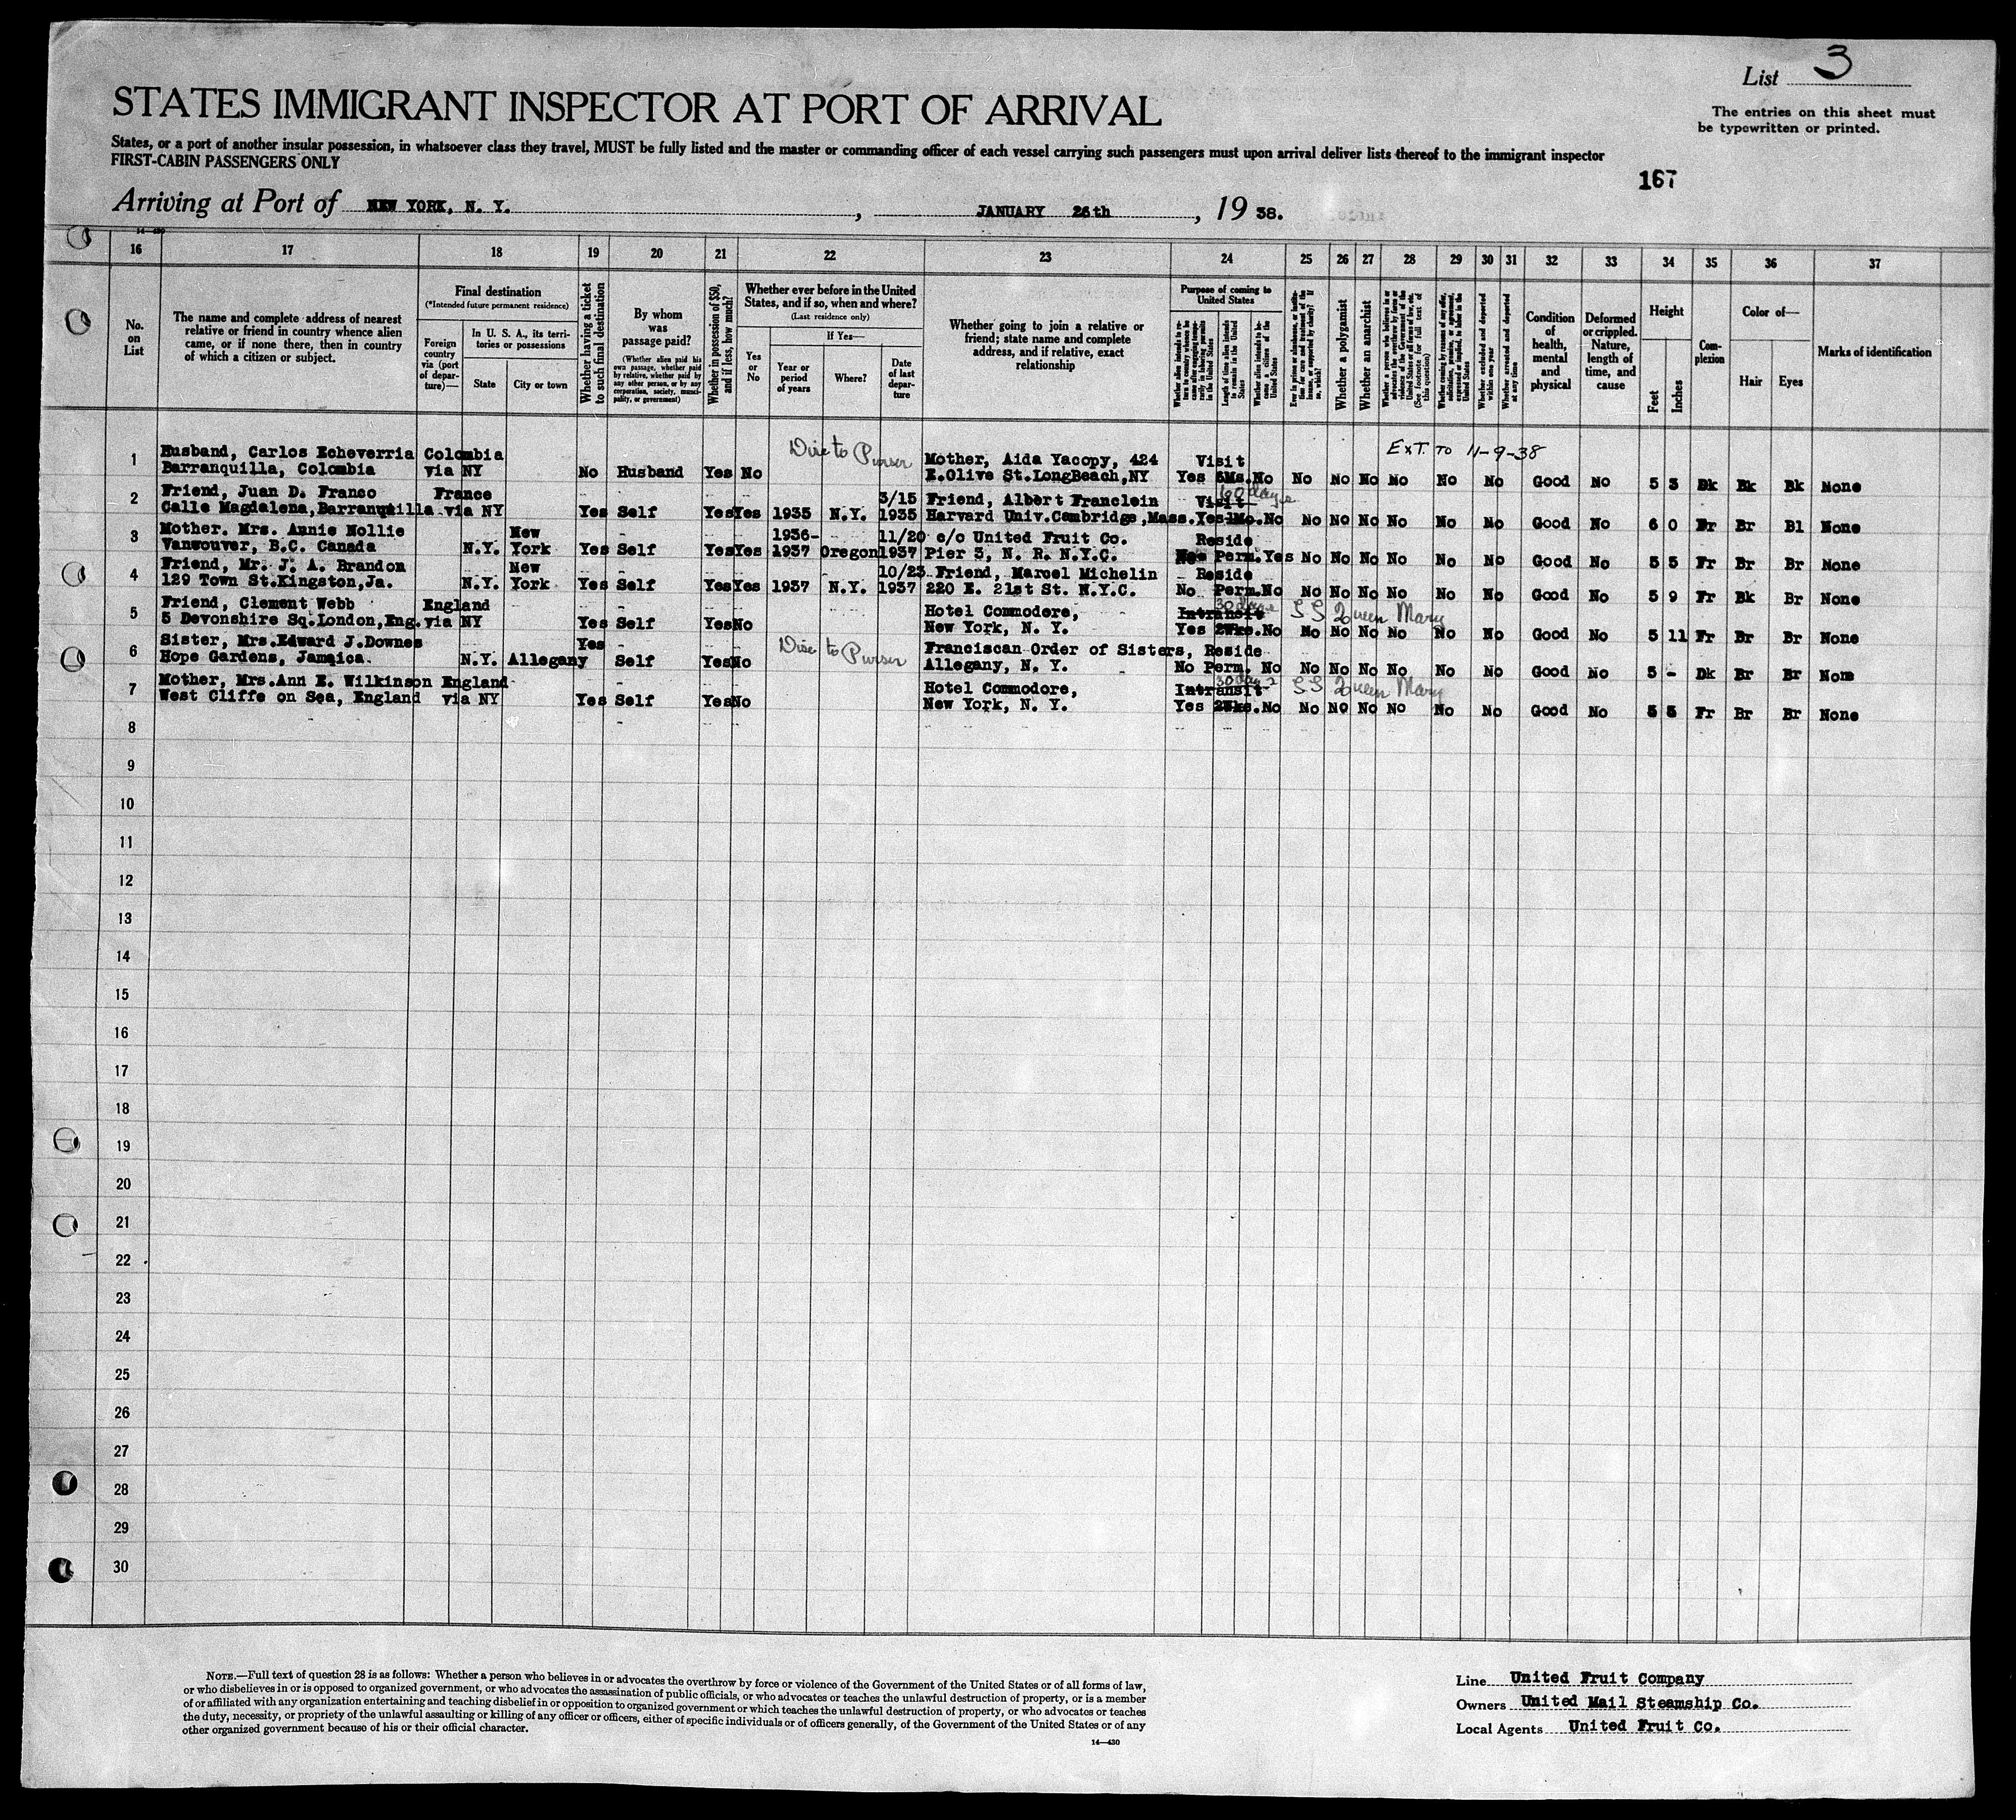 List 3
STATES IMMIGRANT INSPECTOR AT PORT OF ARRIVAL
The entries on this sheet must
be typewritten or printed.
States, or a port of another insular possession, in whatsoever class they travel, MUST be fully listed and the master or commanding officer of each vessel carrying such passengers must upon arrival deliver lists thereof to the immigrant inspector
FIRST-CABIN PASSENGERS ONLY
167
Arriving at Port of NEW YORK, N. Y. , JANUARY 26th , 19 38.
16 17 18 19 20 21 22 23 24 25 26 27 28 29 30 31 32 33 34 35 36 37
No. on List
The name and complete address of nearest relative or friend in country whence alien came, or if none there, then in country of which a citizen or subject.
Final destination
(*Intended future permanent residence)
Foreign country via (port of departure)—
In U. S. A., its territories or possessions
State
City or town
Whether having a ticket to such final destination
By whom was passage paid?
(Whether alien paid his own passage, whether paid by relative, whether paid by any other person, or by any corporation, society, municipality, or government)
Whether in possession of $50, and if less, how much?
Whether ever before in the United States, and if so, when and where?
(Last residence only)
Yes or No
If Yes—
Year or period of years
Where?
Date of last departure
Whether going to join a relative or friend; state name and complete address, and if relative, exact relationship
Purpose of coming to United States
Length of time alien intends to remain in the United States
Whether alien intends to become a citizen of the United States
Whether a polygamist
Whether an anarchist
Whether arrested and deported at any time
Condition of health, mental and physical
Deformed or crippled. Nature, length of time, and cause
Height
Feet
Inches
Complexion
Color of—
Hair
Eyes
Marks of identification
Disc to Purser
Ext. to 11-9-38
1 Husband, Carlos Echeverria Colombia Mother, Aida Yacopy, 424 Visit
Barranquilla, Colombia via NY No Husband Yes No E.Olive St.LongBeach,NY Yes 6Ms. No No No No No No No Good No 5 3 Dk Bk Bk None
60 days
2 Friend, Juan D. Franco France 3/15 Friend, Albert Franclein Visit
Calle Magdalena,Barranquilla via NY Yes Self Yes Yes 1935 N.Y. 1935 Harvard Univ.Cambridge,Mass. Yes 1Mo. No No No No No No No Good No 6 0 Br Br Bl None
3 Mother. Mrs. Annie Nollie New 1936- 11/20 c/o United Fruit Co. Reside
Vancouver, B.C. Canada N.Y. York Yes Self Yes Yes 1937 Oregon 1937 Pier 3, N. R. N.Y.C. Perm. Yes No No No No No No Good No 5 5 Fr Br Br None
4 Friend, Mr. J. A. Brandon New 10/23 Friend, Marcel Michelin Reside
129 Town St.Kingston,Ja. N.Y. York Yes Self Yes Yes 1937 N.Y. 1937 220 E. 21st St. N.Y.C. No Perm. No No No No No No No Good No 5 9 Fr Bk Br None
30 days SS Queen Mary
5 Friend, Clement Webb England Hotel Commodore, Intransit
5 Devonshire Sq.London,Eng. via NY Yes Self Yes No New York, N. Y. Yes 2Wks. No No No No No No No Good No 5 11 Fr Br Br None
Disc to Purser
6 Sister, Mrs.Edward J.Downes Yes Franciscan Order of Sisters, Reside
Hope Gardens, Jamaica. N.Y. Allegany Self Yes No Allegany, N. Y. No Perm. No No No No No No No Good No 5 - Dk Br Br None
30 days SS Queen Mary
7 Mother, Mrs.Ann E. Wilkinson England Hotel Commodore, Intransit
West Cliffe on Sea, England via NY Yes Self Yes No New York, N. Y. Yes 2Wks. No No No No No No No Good No 5 5 Fr Br Br None
8
9
10
11
12
13
14
15
16
17
18
19
20
21
22
23
24
25
26
27
28
29
30
NOTE.—Full text of question 28 is as follows: Whether a person who believes in or advocates the overthrow by force or violence of the Government of the United States or of all forms of law,
or who disbelieves in or is opposed to organized government, or who advocates the assassination of public officials, or who advocates or teaches the unlawful destruction of property, or is a member
of or affiliated with any organization entertaining and teaching disbelief in or opposition to organized government or which teaches the unlawful destruction of property, or who advocates or teaches
the duty, necessity, or propriety of the unlawful assaulting or killing of any officer or officers, either of specific individuals or of officers generally, of the Government of the United States or of any
other organized government because of his or their official character.
14—430
Line United Fruit Company
Owners United Mail Steamship Co.
Local Agents United Fruit Co.